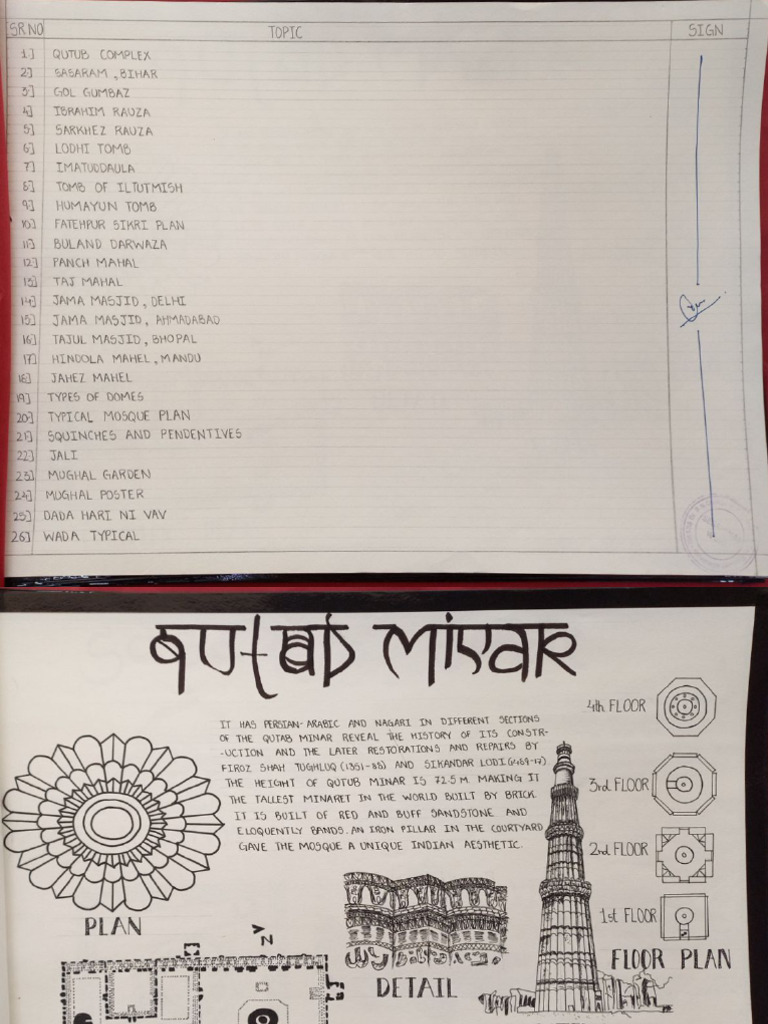 SR.NO TOPIC SIGN
1] QUTUB COMPLEX
2] SASARAM , BIHAR
3] GOL GUMBAZ
4] IBRAHIM RAUZA
5] SARKHEZ RAUZA
6] LODHI TOMB
7] IMATUDDAULA
8] TOMB OF ILTUTMISH
9] HUMAYUN TOMB
10] FATEHPUR SIKRI PLAN
11] BULAND DARWAZA
12] PANCH MAHAL
13] TAJ MAHAL
14] JAMA MASJID , DELHI
15] JAMA MASJID , AHMADABAD
16] TAJUL MASJID , BHOPAL
17] HINDOLA MAHEL , MANDU
18] JAHEZ MAHEL
19] TYPES OF DOMES
20] TYPICAL MOSQUE PLAN
21] SQUINCHES AND PENDENTIVES
22] JALI
23] MUGHAL GARDEN
24] MUGHAL POSTER
25] DADA HARI NI VAV
26] WADA TYPICAL
QUTAB MINAR
IT HAS PERSIAN-ARABIC AND NAGARI IN DIFFERENT SECTIONS
OF THE QUTAB MINAR REVEAL THE HISTORY OF ITS CONSTR-
-UCTION AND THE LATER RESTORATIONS AND REPAIRS BY
FIROZ SHAH TUGHLUQ (1351-88) AND SIKANDAR LODI.(1489-17)
THE HEIGHT OF QUTUB MINAR IS 72.5 M. MAKING IT
THE TALLEST MINARET IN THE WORLD BUILT BY BRICK.
IT IS BUILT OF RED AND BUFF SANDSTONE AND
ELOQUENTLY BANDS. AN IRON PILLAR IN THE COURTYARD
GAVE THE MOSQUE A UNIQUE INDIAN AESTHETIC.
4th FLOOR
3rd FLOOR
2nd FLOOR
1st FLOOR
FLOOR PLAN
PLAN
N
DETAIL